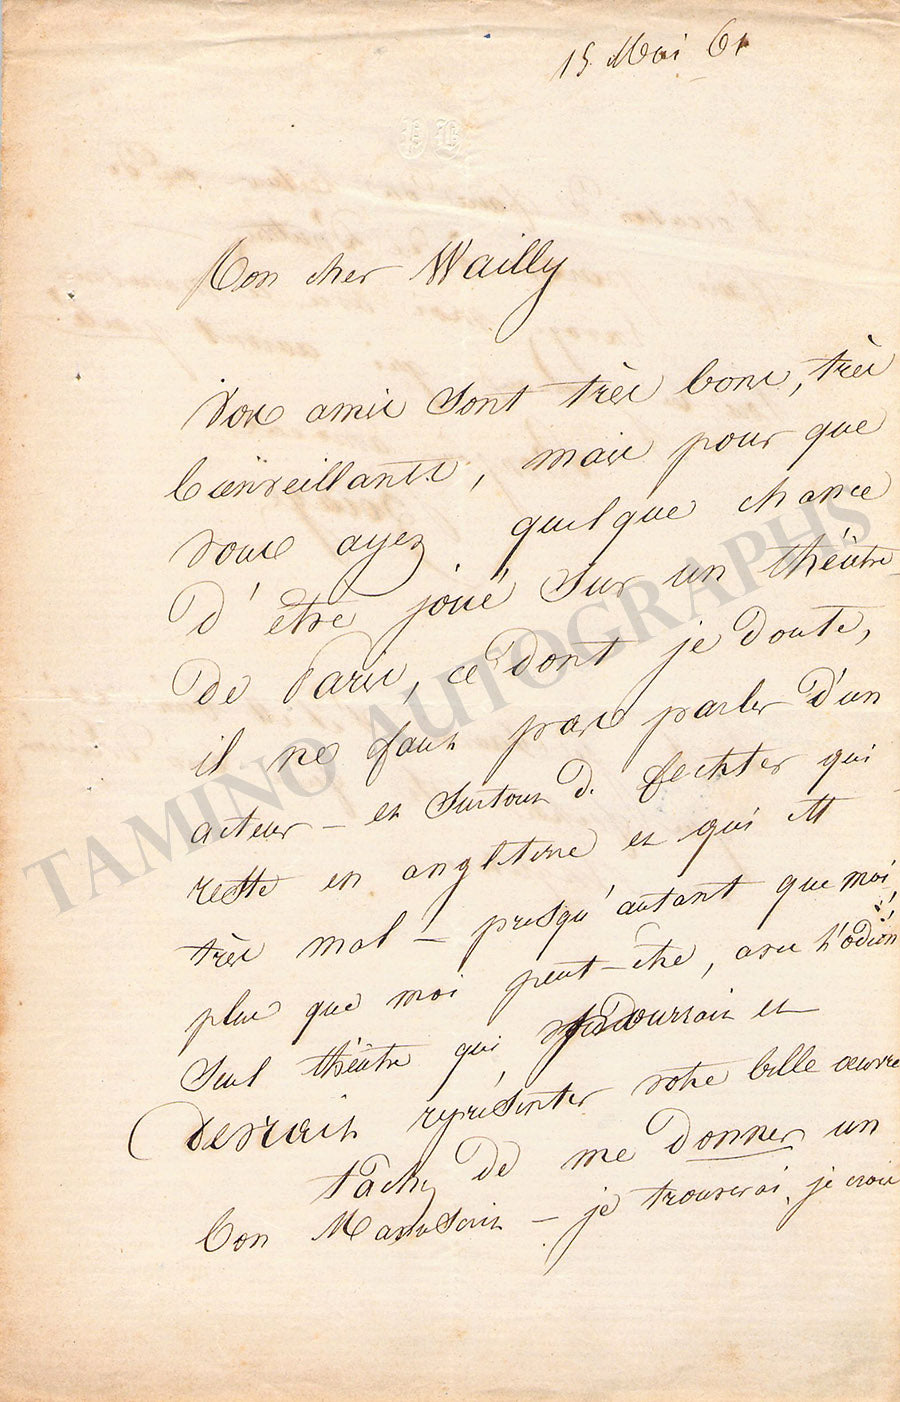 15 Mai 61
Mon cher Wailly
Vos amis sont très bons, très
bienveillants, mais pour que
vous ayez quelque chance
d'être joué sur un théâtre
de Paris, ce dont je doute,
il ne faut pas parler d'un
acteur — et surtout de fechter qui
reste en angleterre et qui est
très mal — presqu'autant que moi,
plus que moi peut-être, avec l'odéon
seul théâtre qui pourrait et
devrait représenter votre belle œuvre
tâchez de me donner un
bon Manuscrit — je trouverai, je crois
TAMINO AUTOGRAPHS